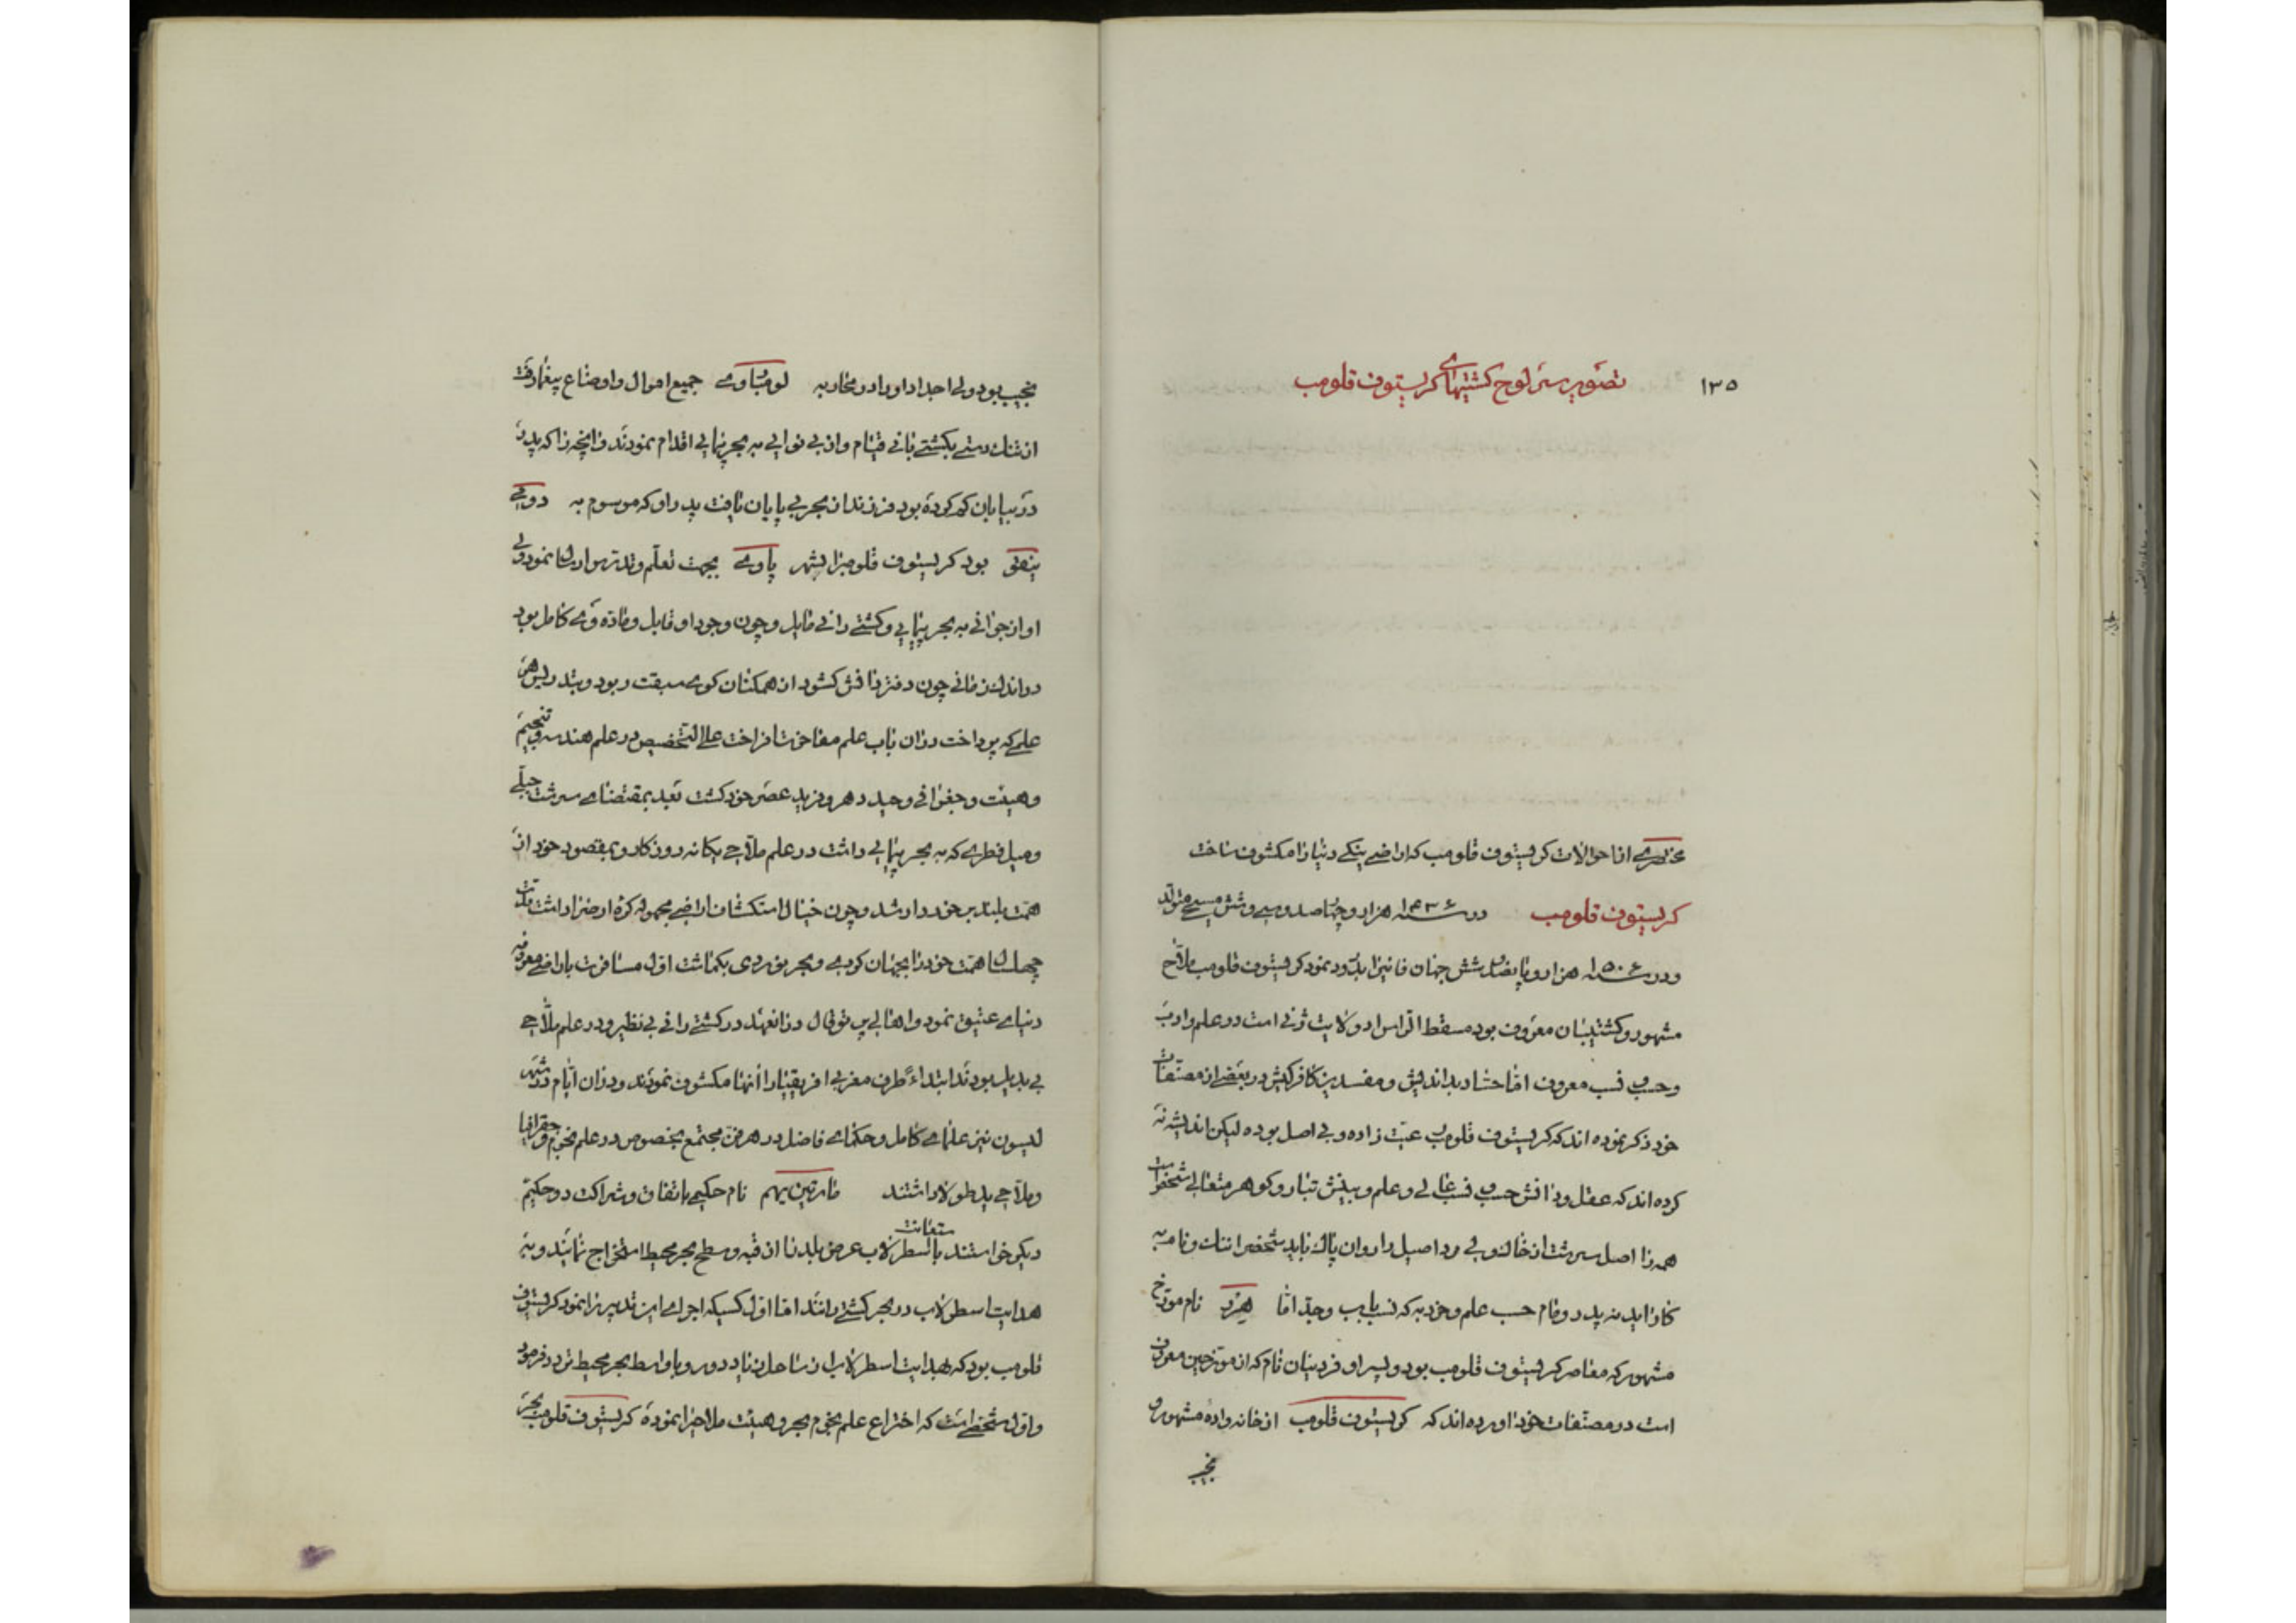 ۱۳۵
تصویر سر لوح کشتیهای کریستوف قلومب
مختصری از احوالات کریستوف قلومب که اراضی ینکے دنیا را مکشوف ساخت
کریستوف قلومب در سنه ۱۴۳۶ هزار و چهارصد و سی و شش مسیحی متولد
و در سنه ۱۵۰۶ هزار و پانصد و شش جهان فانی را بدرود نمود کریستوف قلومب ملاح
مشهور و کشتیبان معروف بوده مسقط الراس او ولایت ژنی است در علم و ادب
و حسب و نسب معروف اما حساد بداندیش و مفسدین کافر کیش در بعضی از مصنفات
خود ذکر نموده اند که کریستوف قلومب عبث زاده و بی اصل بوده لیکن اندیشه نه
کرده اند که عقل و دانش حسب و نسب عالی و علم و بینش تبار و گوهر متعالی شخص است
همه را اصل سرشت از خاک ولی مرد اصیل را روان پاک باید شخص را ننک و نام به
کار اید نه پدر و مام حسب علم و خرد به که نسب باب و جد اما هرر نام مورخ
مشهور که معاصر کریستوف قلومب بود و پسر او فردینان نام که از مورخین معروف
است در مصنفات خود اورده اند که کریستوف قلومب از خانه واده مشهور و
نجیب
نجیب بود ولی اجداد او را در محاربه لومباردی جمیع اموال و اوضاع بیغما رفت
از تنک دستی بکشتی بانی قیام و از بی نوایی به بحر پیمایی اقدام نمودند و انچه را که پدر
در بیابان کم کرده بود فرزند از بحر بی پایان یافت پدر او که موسوم به دومی
نیقو بود کریستوف قلومب را بشهر پاوی بجهت تعلم و تدرس ارسال نمود ولی
او از جوانی به بحر پیمایی و کشتی رانی مایل و چون وجود او قابل و ماده وی کامل بود
در اندک زمانی چون دفتر دانش کشود از همکنان کوی سبقت ربود و بتدریس هر
علم که پرداخت در ان باب علم مفاخرت افراخت علی التخصیص در علم هندسه و تنجیم
و هیئت و جغرافی وحید دهر و فرید عصر خود کشت بعد بمقتضای سرشت جبلی
و میل فطری که به بحر پیمایی داشت در علم ملاحی یکانه روزکار و بمقصود خود از
همت بلند برخوردار شد و چون خیال استکشاف اراضی مجهوله کره ارض را داشت مدت
چهل سال همت خود را بجهان کردی و بحر نوردی بکماشت اول مسافرت باراضی معروفه
دنیای عتیق نمود و اهالی پرتوقال در انعهد در کشتی رانی بی نظیر و در علم ملاحی
بی بدیل بودند ابتداءً طرف مغربی افریقیا را انها مکشوف نمودند و در ان ایام در شهر
لیسبون نیز علمای کامل و حکمای فاضل در هر فن مجتمع بخصوص در علم نجوم و جغرافیا
و ملاحی ید طولا داشتند مارتین بهیم نام حکیمی باتفاق و شراکت دو حکیم
دیکر خواستند باستعانت اسطرلاب عرض بلد را از قبه و سطح بحر محیط استخراج نمایند و به
هدایت اسطرلاب در بحر کشتی رانند اما اول کسیکه اجرای این تدبیر را نمود کریستوف
قلومب بود که بهدایت اسطرلاب از ساحل زیاد دور و باواسط بحر محیط تردد فرمود
و اول شخصی است که اختراع علم نجوم بحر و هیئت ملاحی را نموده کریستوف قلومب بحر